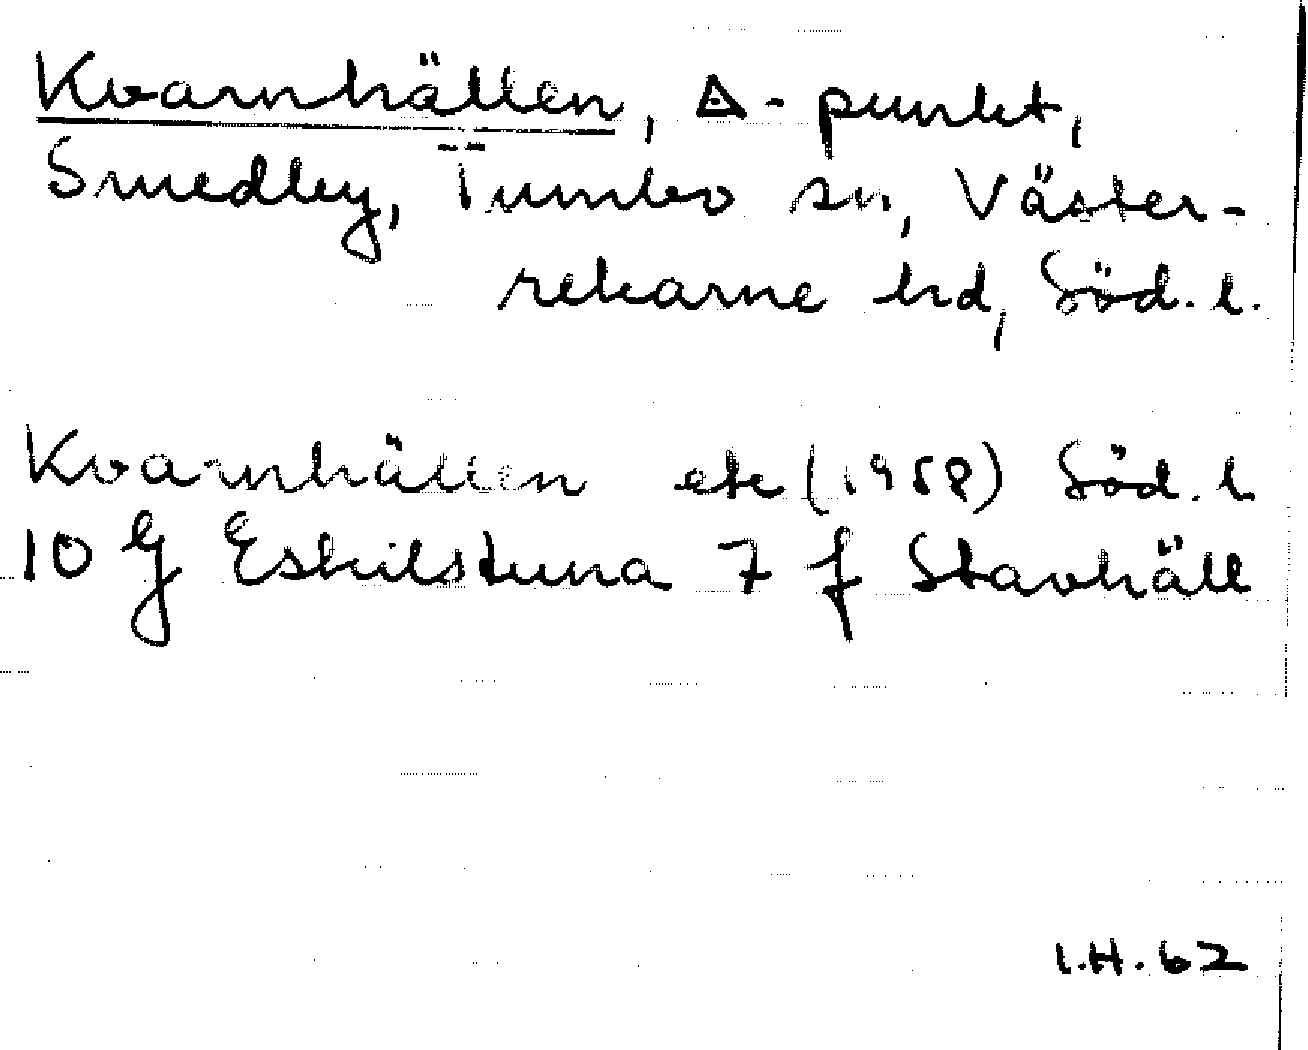 Kvarnhällen, △-punkt,
Smedby, Tumbo sn, Väster-
rekarne hd, Söd. l.
Kvarnhällen ek (1958) Söd. l
10 G Eskilstuna 7 f Stavhäll
I.H. 62